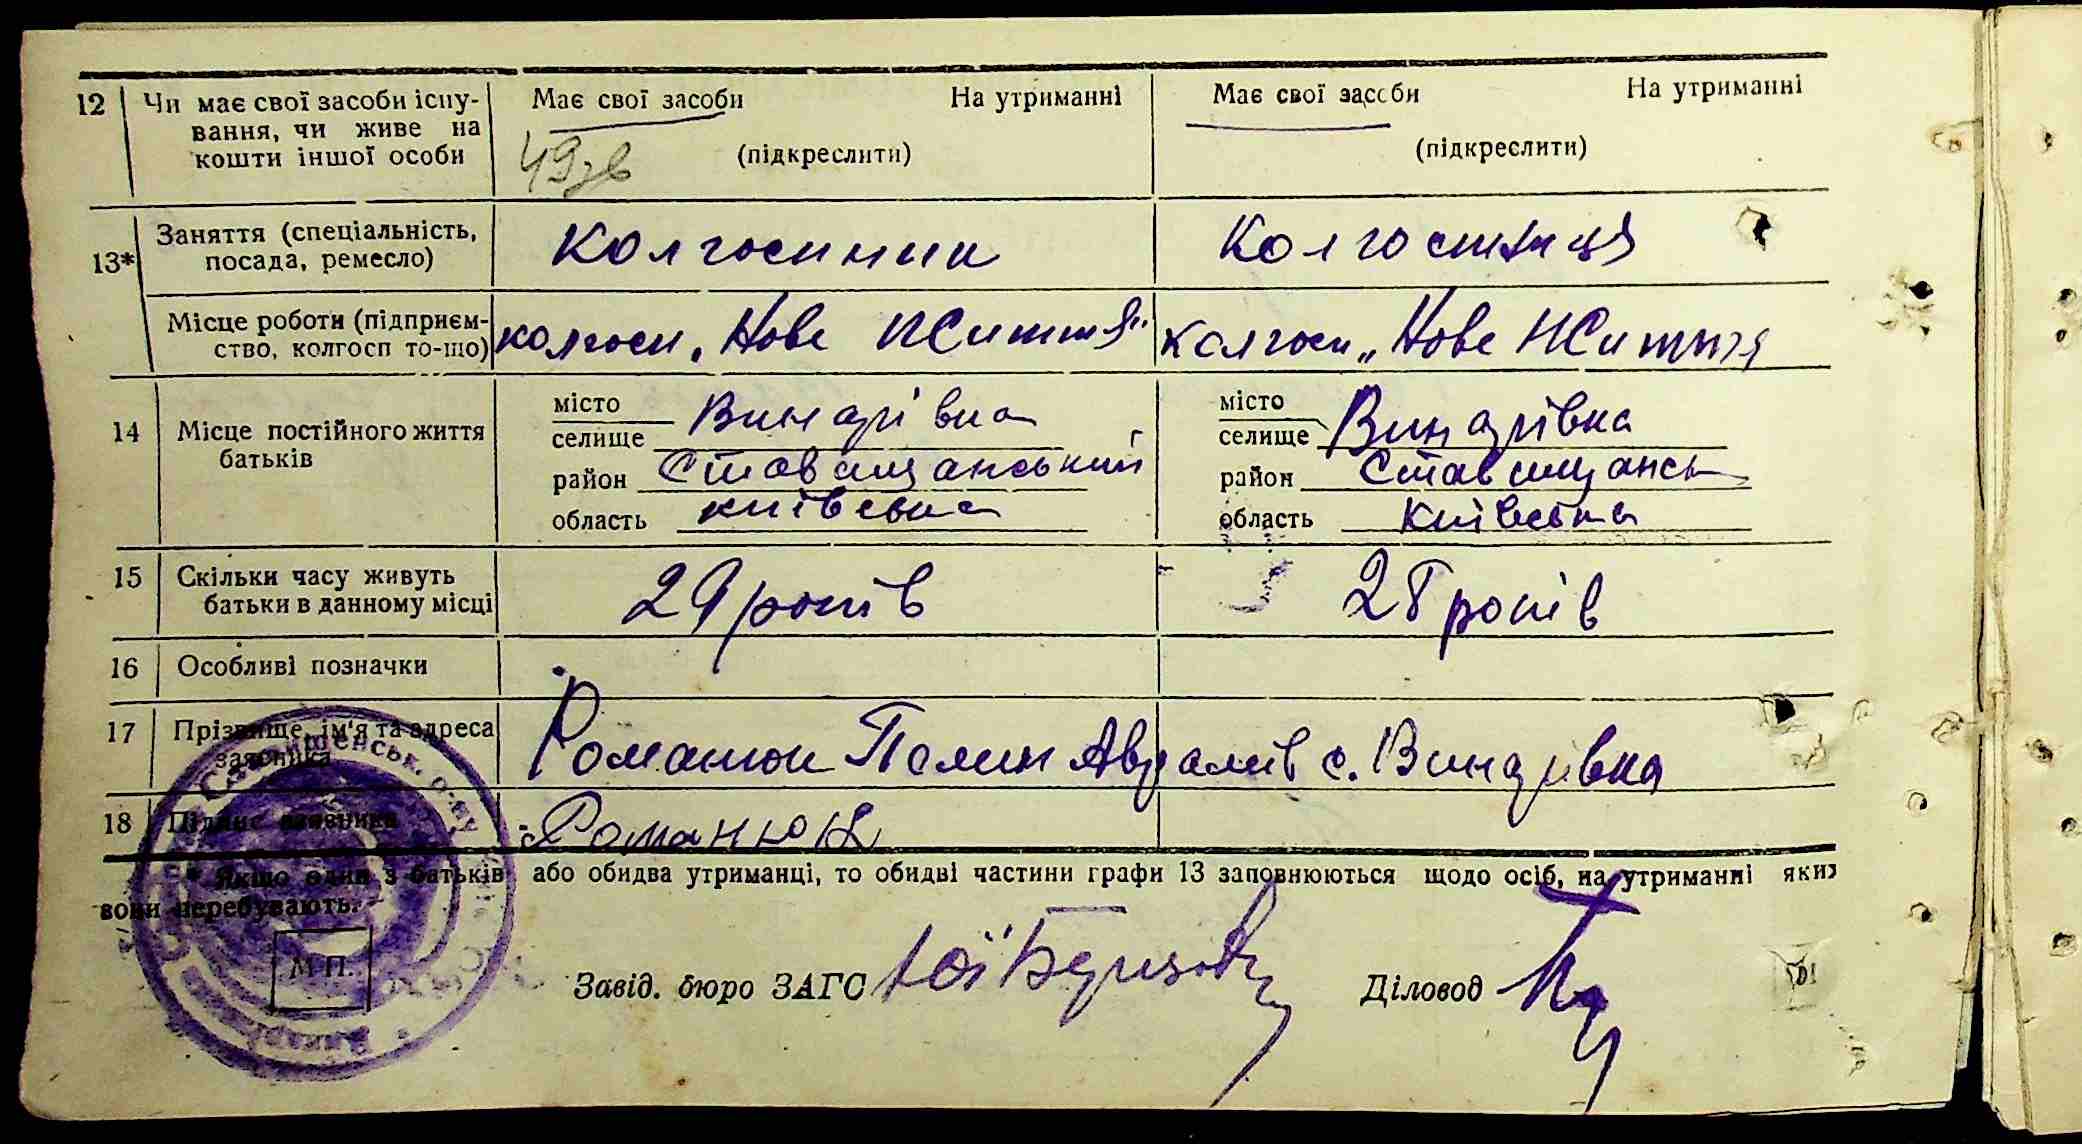 12 Чи має свої засоби існу- Має свої засоби На утриманні Має свої засоби На утриманні
вання, чи живе на
кошти іншої особи (підкреслити) (підкреслити)
13* Заняття (спеціальність, колгоспник Колгоспниця
посада, ремесло)
Місце роботи (підприєм- колгосп „Нове Життя" колгосп „Нове Життя
ство, колгосп то-що)
14 Місце постійного життя місто Винарівка місто Винарівка
батьків селище селище
район Ставищанський район Ставищанськ
область київська область Київська
15 Скільки часу живуть 29 років 28 років
батьки в данному місці
16 Особливі позначки
17 Прізвище, ім'я та адреса Романюк Полин Аврамів с. Винарівка
заявника
18 Підпис заявника Романюк
* Якщо один з батьків або обидва утриманці, то обидві частини графи 13 заповнюються щодо осіб, на утриманні яких
вони перебувають.
М.П.
Завід. бюро ЗАГС Діловод